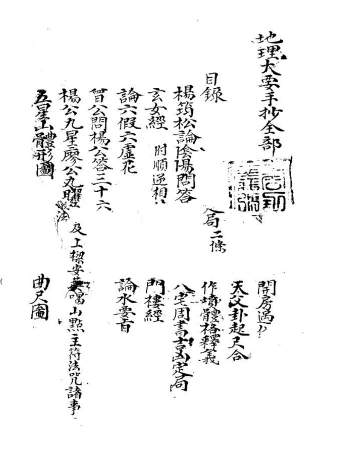 地理大要手抄全部
目録
楊筠松論陰陽問答
玄女經 附順逆類
局二條
論六假六虛花
曾公問楊公答三十六
楊公九星廖公九
及上樑安葬唱山點主符法咒諸事
五星山體形圖
開房過
天父卦起尺合
作墳體格釋義
八宅周書吉凶定局
門樓經
論水要言
曲尺圖